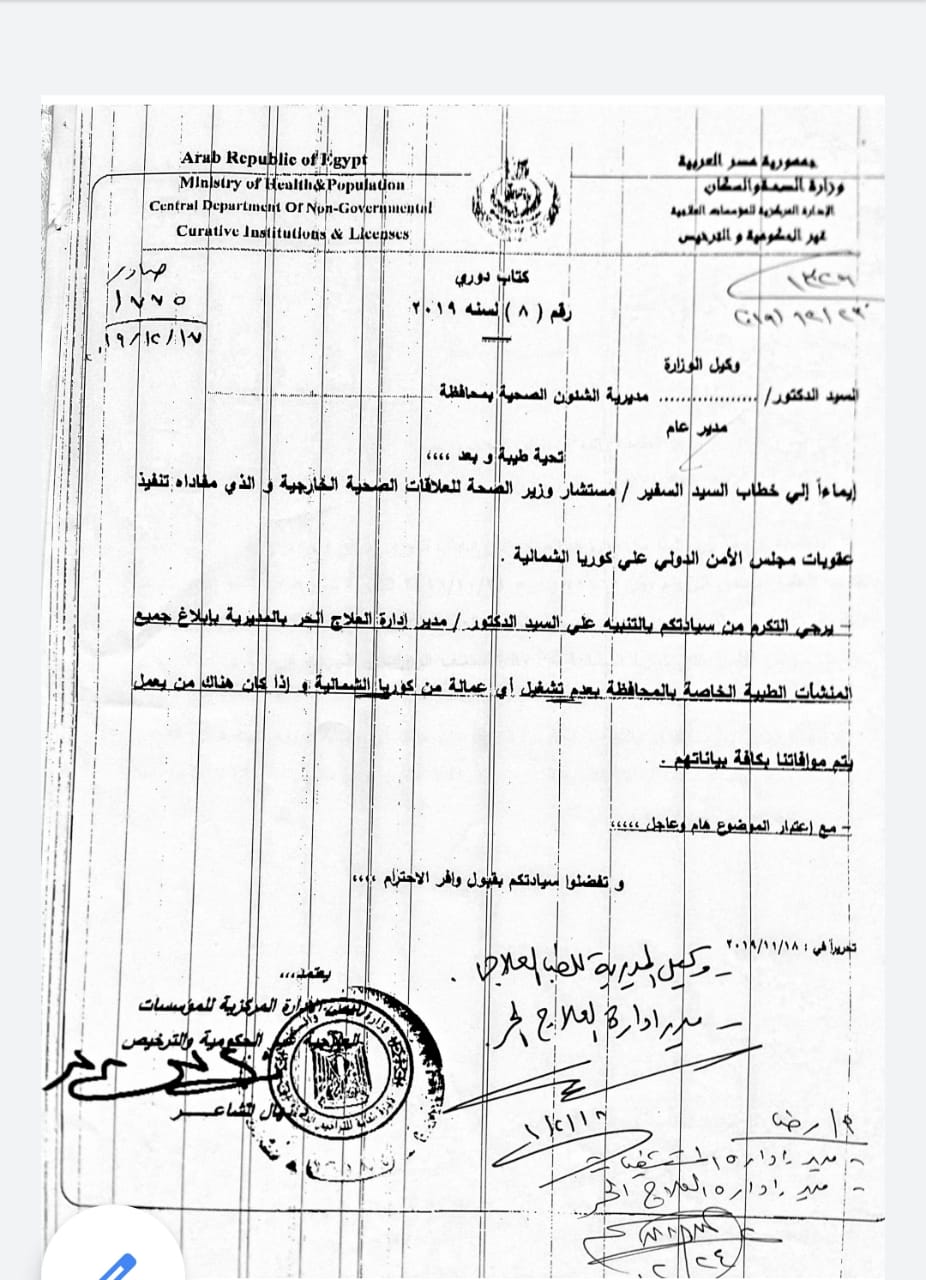 Arab Republic of Egypt
Ministry of Health&Population
Central Department Of Non-Governmental
Curative Institutions & Licenses
جمهورية مصر العربية
وزارة الصحة والسكان
الإدارة المركزية للمؤسسات العلاجية
غير الحكومية و الترخيص
صادر
١٧٧٥
١٩/١٢/١٧
كتاب دوري
رقم ( ٨ ) لسنه ٢٠١٩
وكيل الوزارة
السيد الدكتور/ .................. مديرية الشئون الصحية بمحافظة ..................
مدير عام
تحية طيبة و بعد ،،،،
إيماءاً إلي خطاب السيد السفير / مستشار وزير الصحة للعلاقات الصحية الخارجية و الذي مفاداه تنفيذ
عقوبات مجلس الأمن الدولي علي كوريا الشمالية .
– يرجي التكرم من سيادتكم بالتنبيه علي السيد الدكتور / مدير إدارة العلاج الحر بالمديرية بإبلاغ جميع
المنشآت الطبية الخاصة بالمحافظة بعدم تشغيل أي عمالة من كوريا الشمالية و إذا كان هناك من يعمل
يتم موافاتنا بكافة بياناتهم .
– مع إعتبار الموضوع هام وعاجل ،،،،،
و تفضلوا سيادتكم بقبول وافر الاحترام ،،،،
تحريراً في : ٢٠١٩/١١/١٨
– وكيل المديرية للطب العلاجي .
– مدير ادارة العلاج الحر
يعتمد،،،
الإدارة المركزية للمؤسسات
العلاجية غير الحكومية والترخيص
الشاعر
م/ رضا
– مدير ادارة المستشفيات
– مدير ادارة العلاج الحر